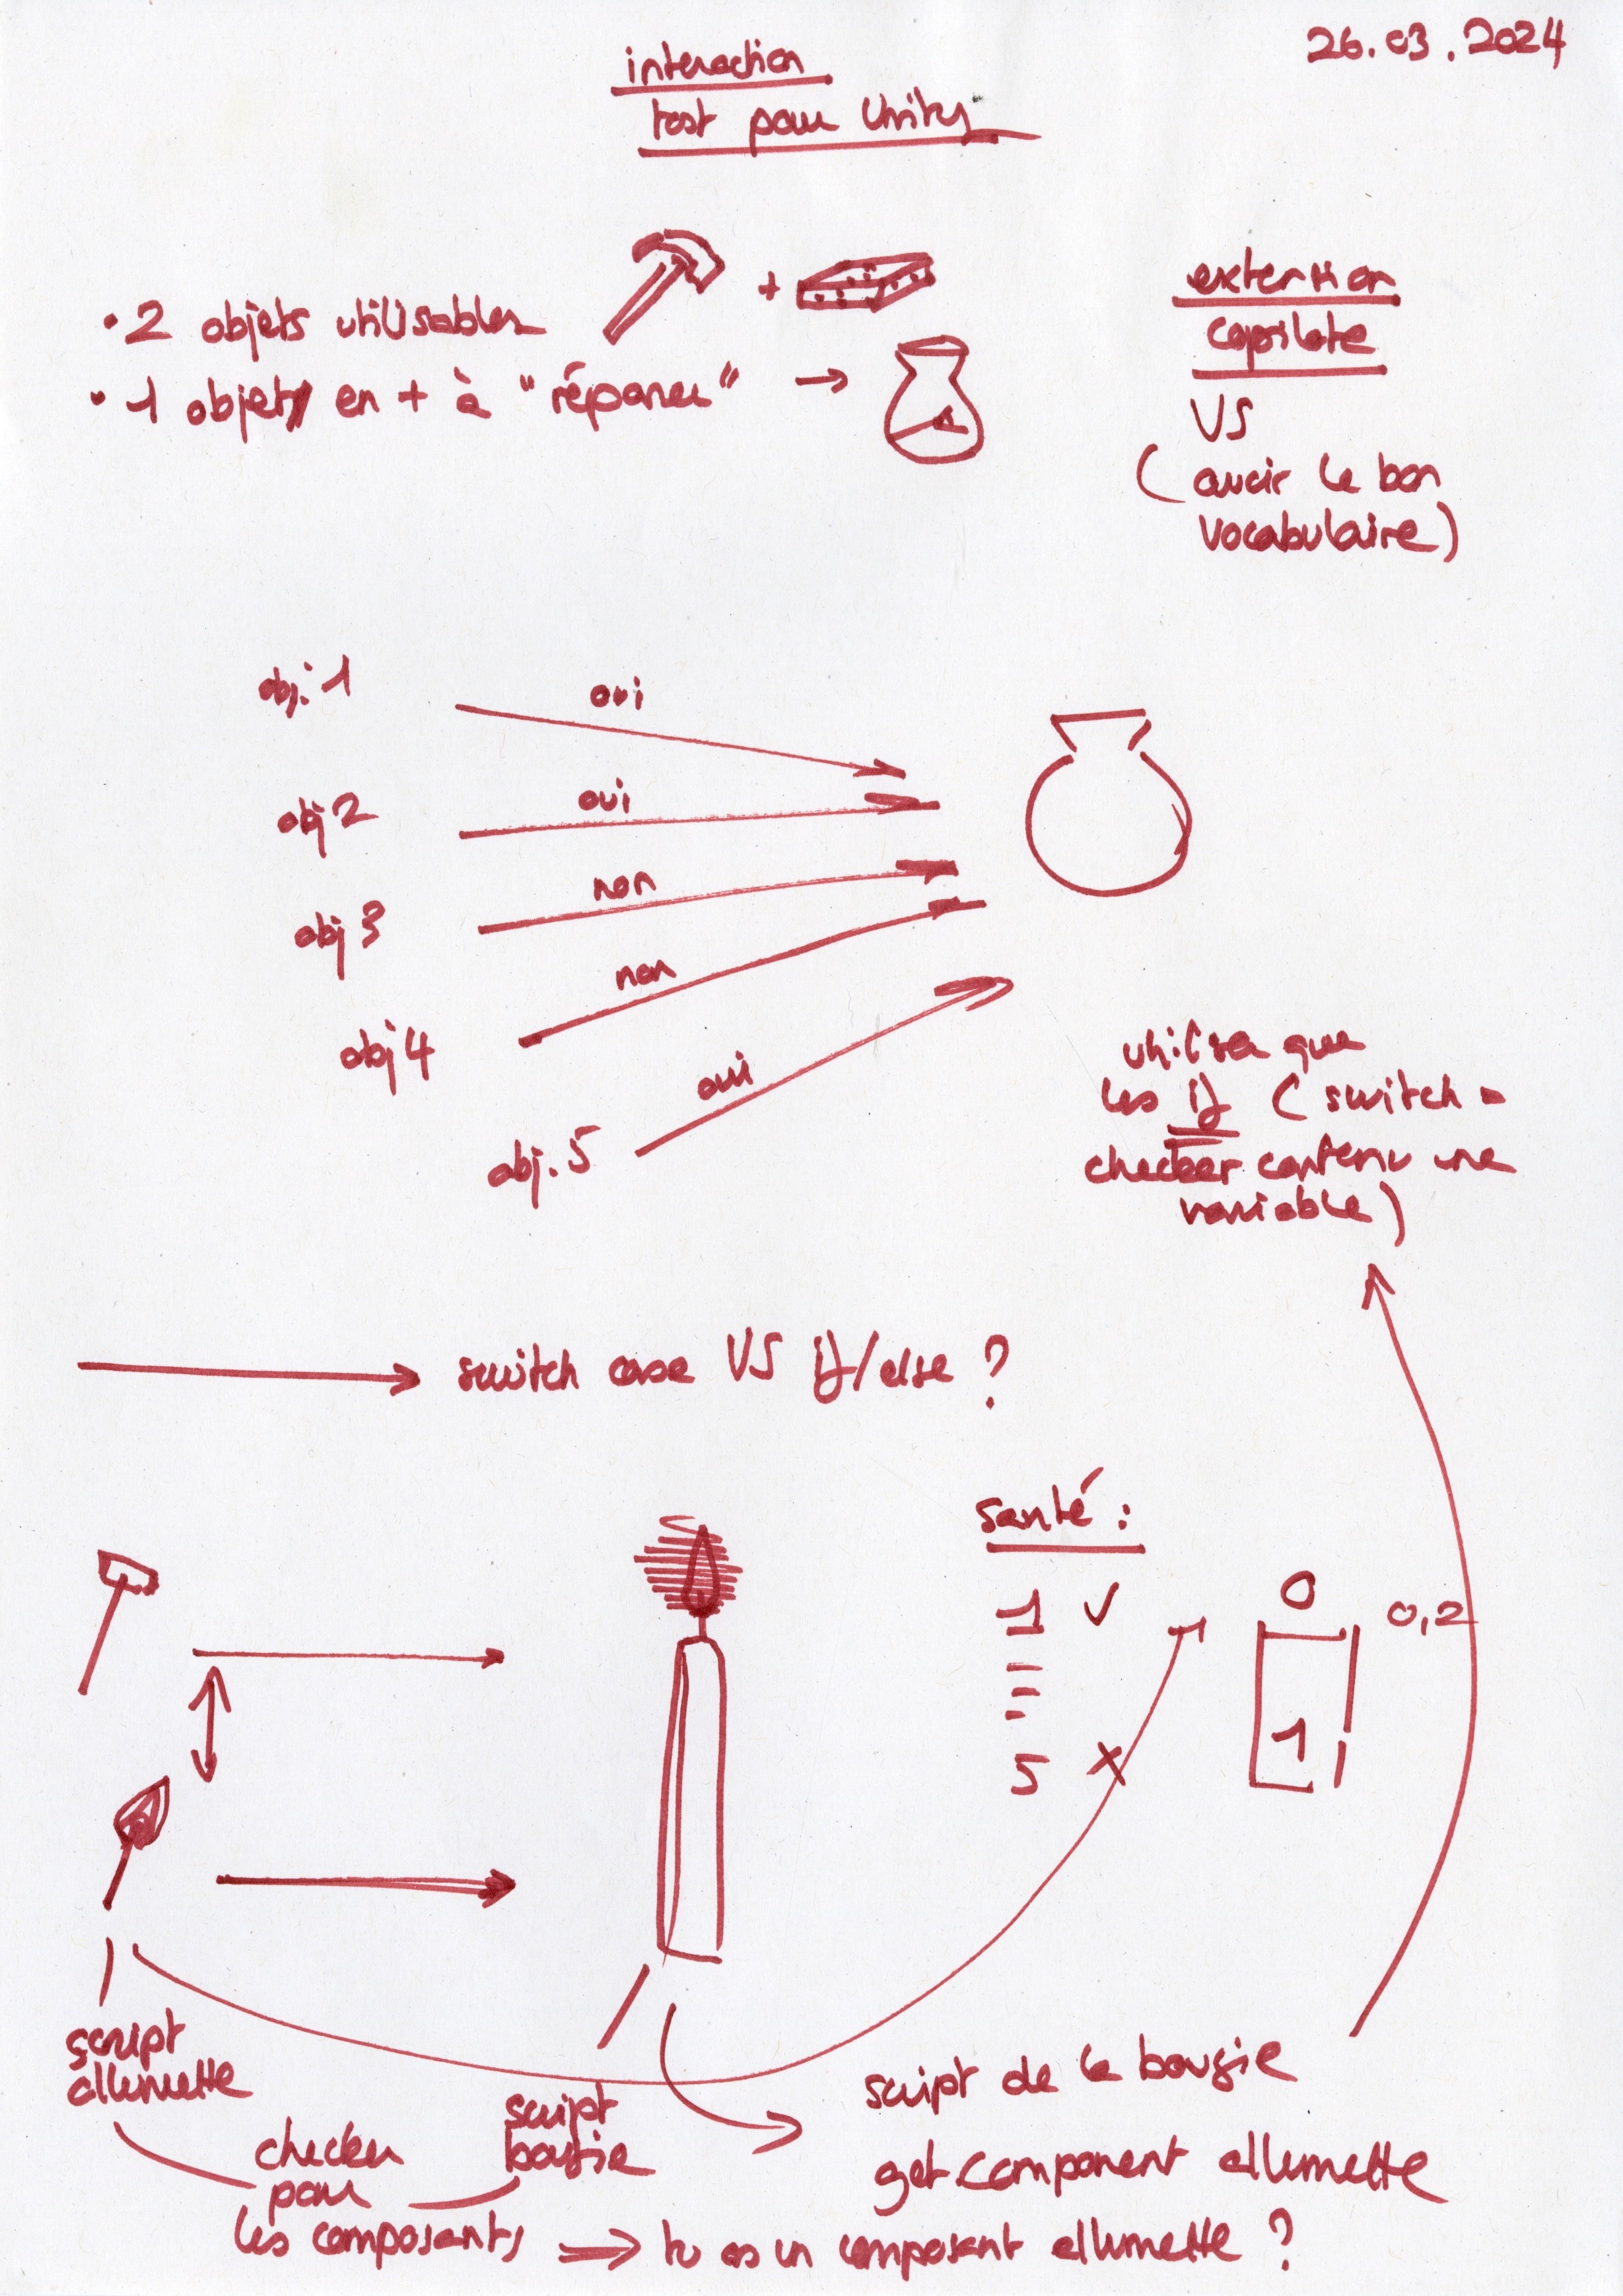 26.03.2024
interaction
test pour Unity
• 2 objets utilisables
+
• 1 objet en + à "réparer" →
extention
copilote
VS
( avoir le bon
vocabulaire)
obj. 1
oui
obj 2
oui
obj 3
non
obj 4
non
obj. 5
oui
utiliser que
les if ( switch =
checker contenu une
variable)
→ switch case VS if/else ?
santé :
1 ✓
5 X
0
0,2
1
script
allumette
script
bougie
checker
pour
les composants → tu as un composant allumette ?
script de la bougie
get component allumette